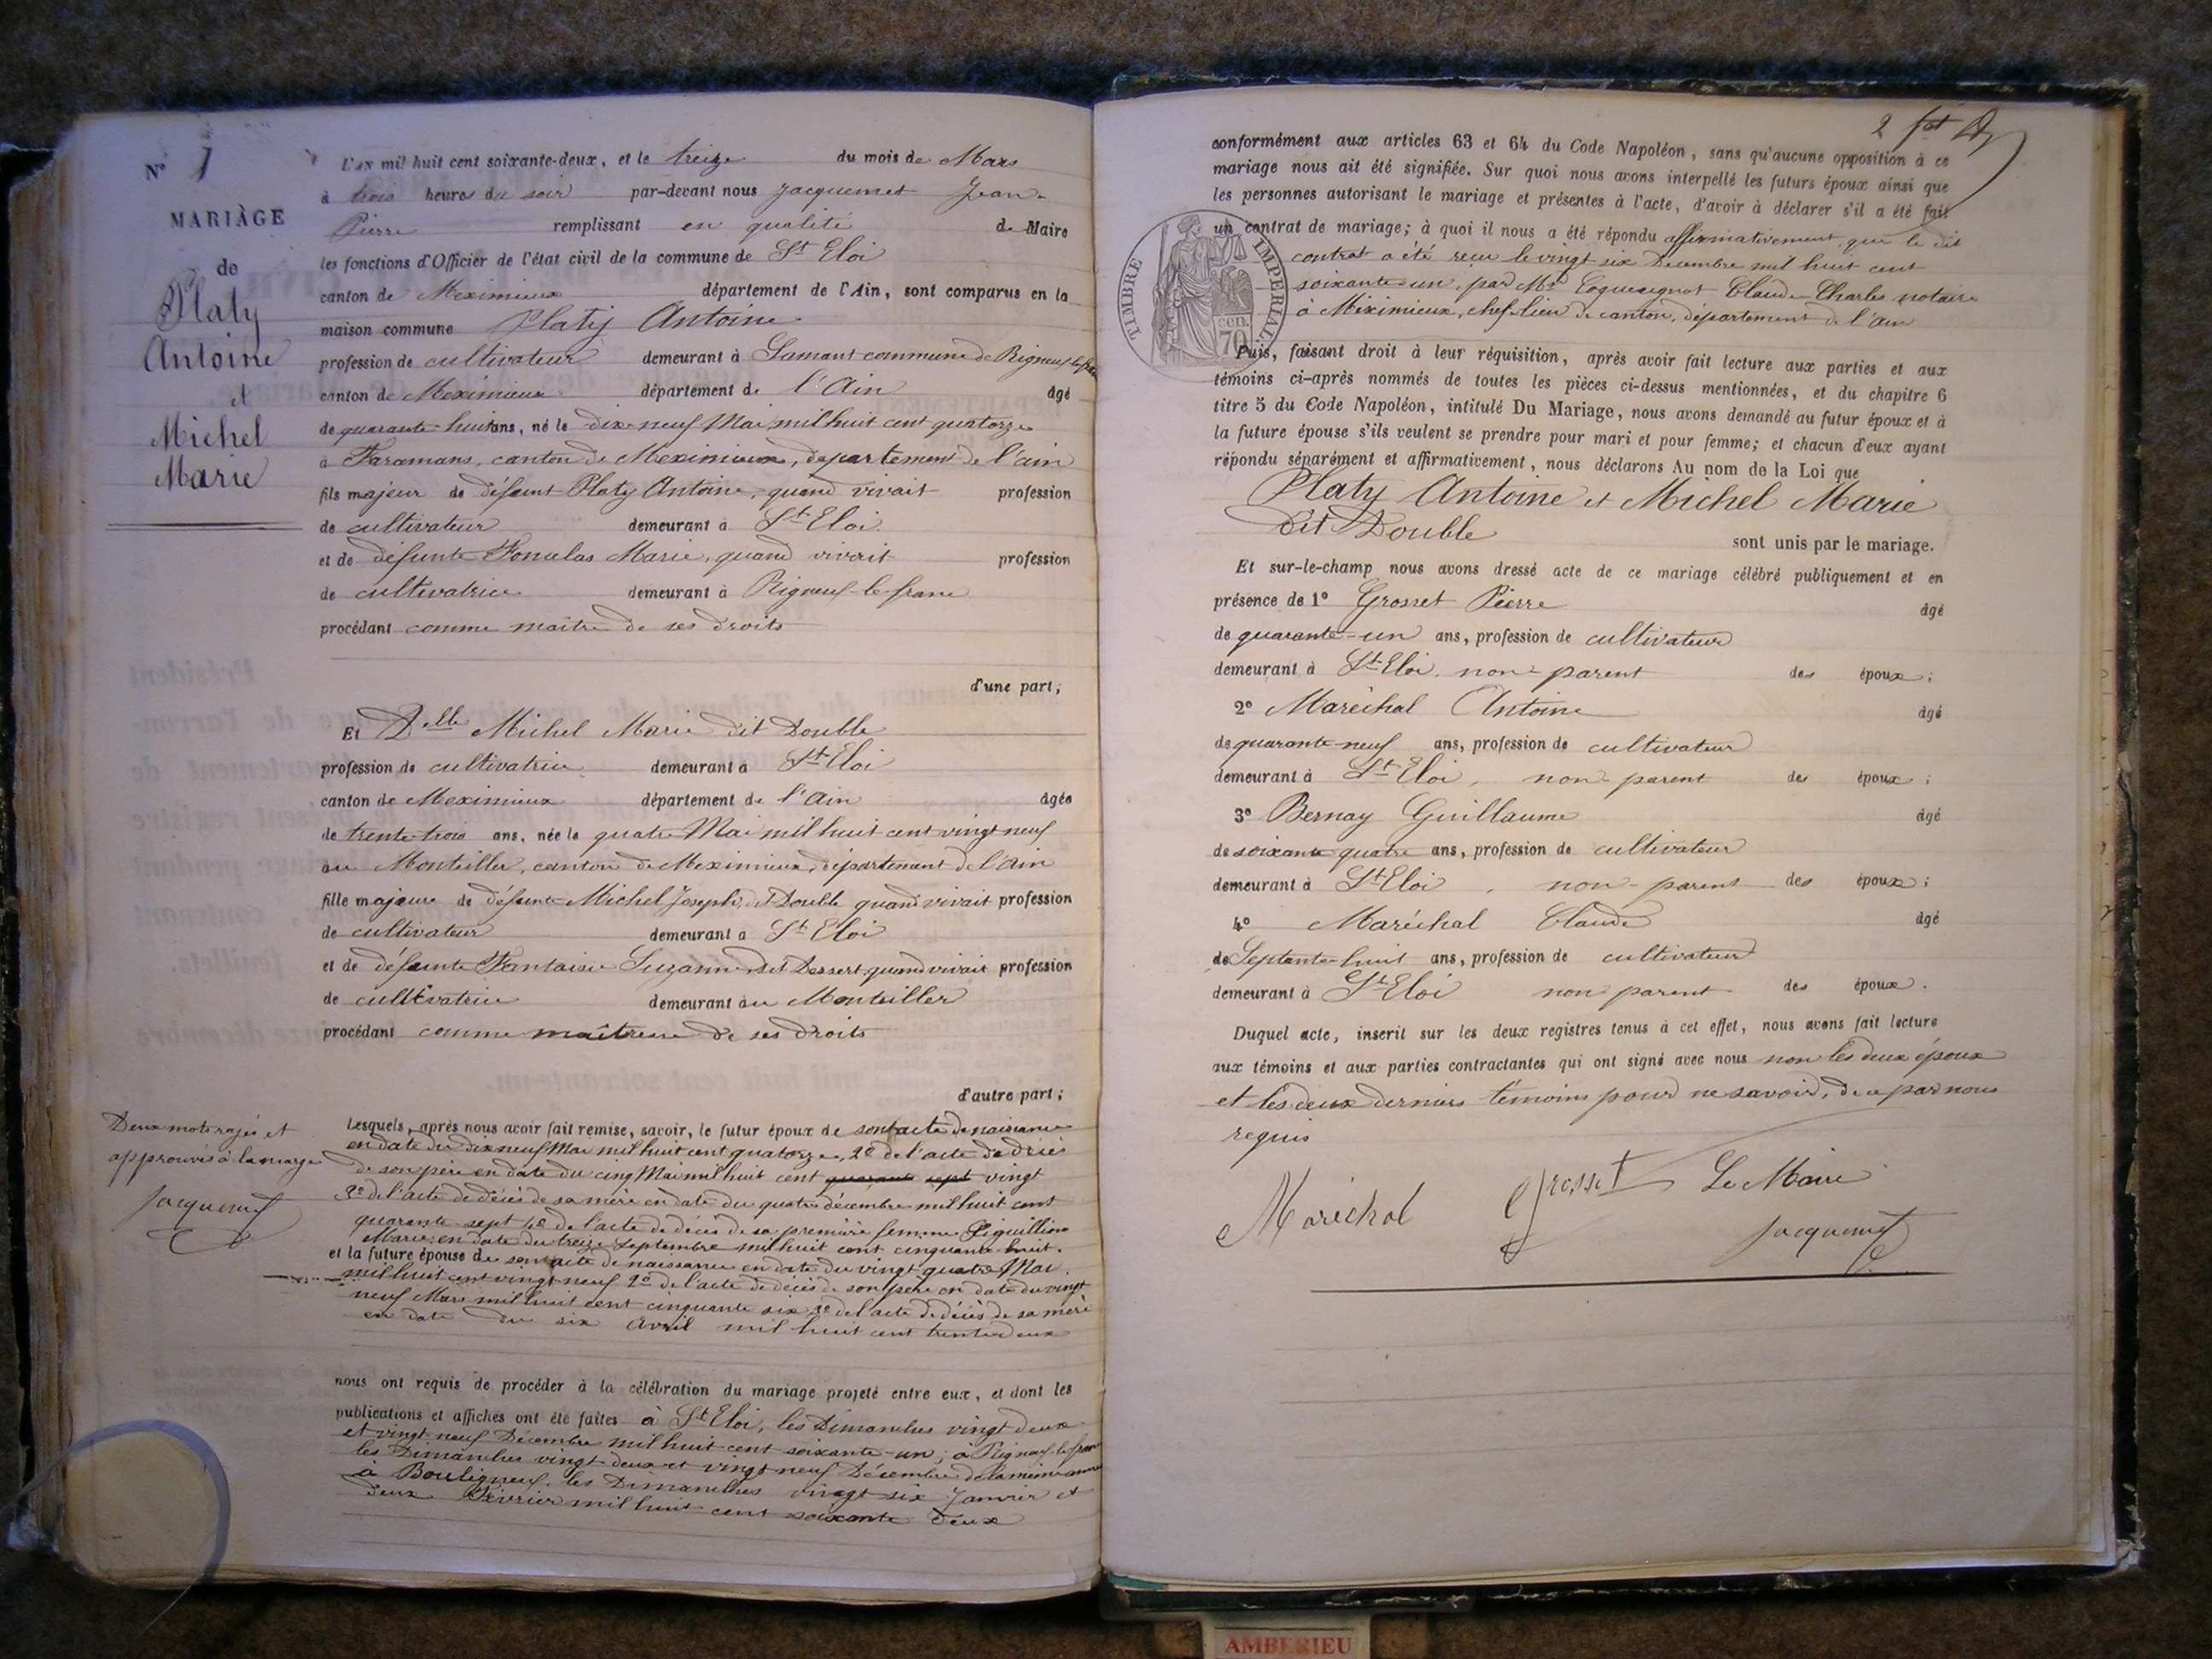 N° 1
MARIAGE
de
Platy
Antoine
et
Michel
Marie
L'an mil huit cent soixante-deux, et le treize du mois de Mars
à trois heures du soir par-devant nous Jacquemet Jean-
Pierre remplissant en qualité de Maire
les fonctions d'Officier de l'état civil de la commune de St Eloi
canton de Meximieux département de l'Ain, sont comparus en la
maison commune Platy Antoine
profession de cultivateur demeurant à Samans commune de Rigneux-le-franc
canton de Meximieux département de l'Ain âgé
de quarante-huit ans, né le dix-neuf Mai mil huit cent quatorze
à Faramans, canton de Meximieux, département de l'ain
fils majeur de défunt Platy Antoine, quand vivait profession
de cultivateur demeurant à St Eloi
et de défunte Marie, quand vivait profession
de cultivatrice demeurant à Rigneux-le-franc
procédant comme maître de ses droits
d'une part;
Et Delle Michel Marie dit Double
profession de cultivatrice demeurant à St Eloi
canton de Meximieux département de l'Ain âgée
de trente-trois ans, née le quatre Mai mil huit cent vingt neuf
au Montellier, canton de Meximieux, département de l'Ain
fille majeure de défunt Michel Joseph dit Double quand vivait profession
de cultivateur demeurant à St Eloi
et de défunte Fontaine Suzanne dit Dessert quand vivait profession
de cultivatrice demeurant au Monteiller
procédant comme maîtresse de ses droits
d'autre part;
Deux mots rayés et
approuvés à la marge
Jacquemet
Lesquels, après nous avoir fait remise, savoir, le futur époux de son acte de naissance
en date du dix neuf Mai mil huit cent quatorze, 2° de l'acte de décès
de son père en date du cinq Mai mil huit cent quarante sept vingt
3° de l'acte de décès de sa mère en date du quatre décembre mil huit cent
quarante-sept 4° de l'acte de décès de sa première femme
Marie, en date du treize Septembre mil huit cent cinquante-huit.
et la future épouse de son acte de naissance en date du vingt quatre Mai
mil huit cent vingt neuf 2° de l'acte de décès de son père en date du vingt
neuf Mars mil huit cent cinquante six 3° de l'acte de décès de sa mère
en date du six Avril mil huit cent trente deux
nous ont requis de procéder à la célébration du mariage projeté entre eux, et dont les
publications et affiches ont été faites à St Eloi, les Dimanches vingt deux
et vingt neuf Décembre mil huit cent soixante-un; à Rigneux-le-franc
les Dimanches vingt deux et vingt neuf Décembre de la même année
à Bouligneux, les Dimanches vingt six Janvier et
deux Février mil huit cent soixante deux
2 fet
conformément aux articles 63 et 64 du Code Napoléon, sans qu'aucune opposition à ce
mariage nous ait été signifiée. Sur quoi nous avons interpellé les futurs époux ainsi que
les personnes autorisant le mariage et présentes à l'acte, d'avoir à déclarer s'il a été fait
un contrat de mariage; à quoi il nous a été répondu affirmativement, que le dit
contrat a été reçu le vingt six Décembre mil huit cent
soixante-un, par Me Claude-Charles notaire
à Méximieux, chef-lieu de canton, département de l'ain
TIMBRE IMPERIAL
70 cen.
Puis, faisant droit à leur réquisition, après avoir fait lecture aux parties et aux
témoins ci-après nommés de toutes les pièces ci-dessus mentionnées, et du chapitre 6
titre 5 du Code Napoléon, intitulé Du Mariage, nous avons demandé au futur époux et à
la future épouse s'ils veulent se prendre pour mari et pour femme; et chacun d'eux ayant
répondu séparément et affirmativement, nous déclarons Au nom de la Loi que
Platy Antoine et Michel Marie
dit Double
sont unis par le mariage.
Et sur-le-champ nous avons dressé acte de ce mariage célébré publiquement et en
présence de 1° Grosset Pierre âgé
de quarante-un ans, profession de cultivateur
demeurant à St Eloi, non parent des époux;
2° Maréchal Antoine âgé
de quarante-neuf ans, profession de cultivateur
demeurant à St Eloi, non-parent des époux;
3° Bernay Guillaume âgé
de soixante quatre ans, profession de cultivateur
demeurant à St Eloi, non-parent des époux;
4° Maréchal Claude âgé
de Septante-huit ans, profession de cultivateur
demeurant à St Eloi non parent des époux.
Duquel acte, inscrit sur les deux registres tenus à cet effet, nous avons fait lecture
aux témoins et aux parties contractantes qui ont signé avec nous non les deux époux
et les deux derniers témoins pour ne savoir, de ce par nous
requis
Maréchal Grosset Le Maire
Jacquemet
AMBERIEU